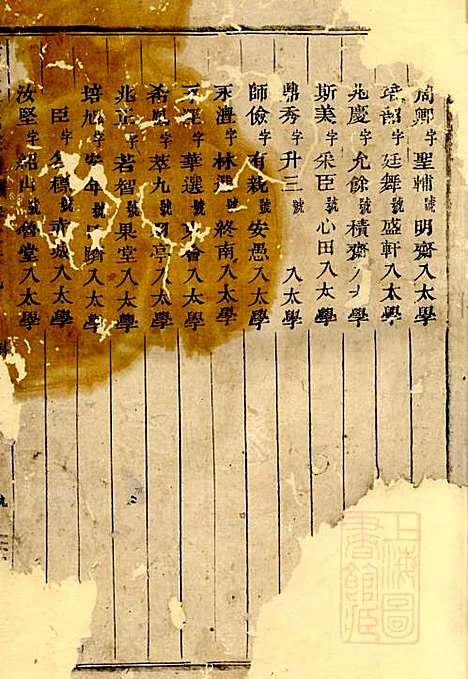 周卿字聖輔 明齋入太學
培韶字廷舞號盛軒入太學
兆慶字允餘號積齋入太學
斯美字采臣號心田入太學
鼎秀字升三號 入太學
師儉字有親號安愚入太學
永澧字林選號終南入太學
字華選 入太學
希 字萃九號 亭入太學
兆 字若智號果堂入太學
培旭字 年號 入太學
臣字 穆號赤城入太學
汝堅字 山號 堂入太學
上海圖書館藏